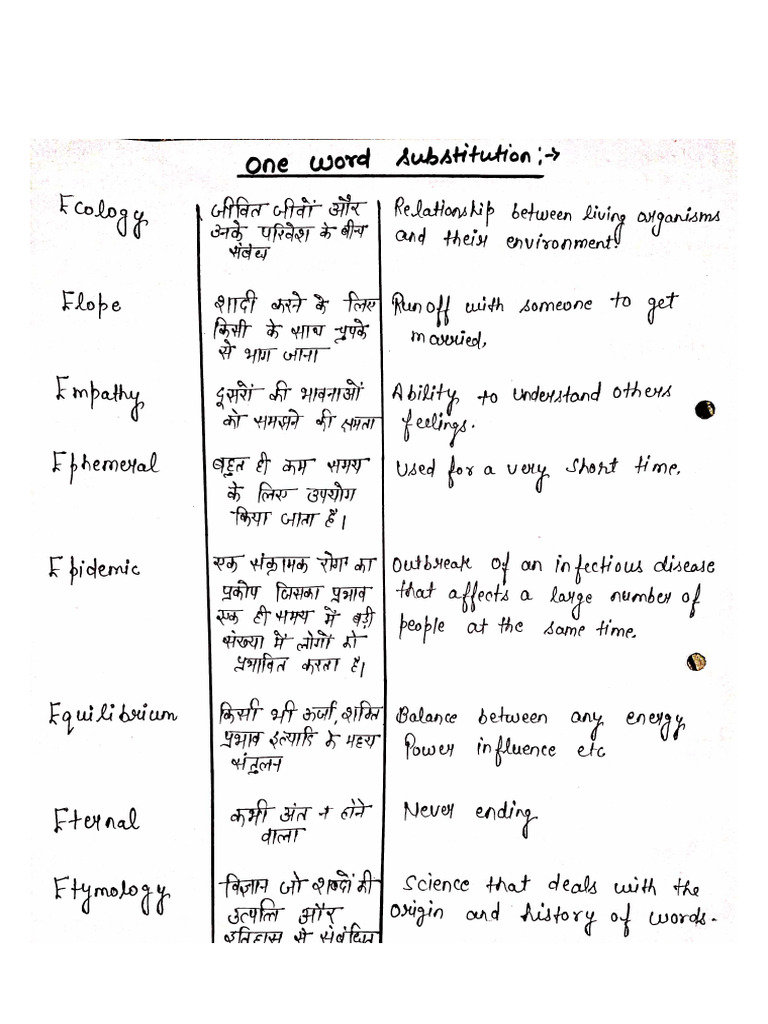 One word substitution:→
Ecology
जीवित जीवों और
उनके परिवेश के बीच
संबंध
Relationship between living organisms
and their environment.
Elope
शादी करने के लिए
किसी के साथ चुपके
से भाग जाना
Run off with someone to get
married,
Empathy
दूसरों की भावनाओं
को समझने की क्षमता
Ability to understand others
feelings.
Ephemeral
बहुत ही कम समय
के लिए उपयोग
किया जाता है।
Used for a very short time.
Epidemic
एक संक्रामक रोग का
प्रकोप जिसका प्रभाव
एक ही समय में बड़ी
संख्या में लोगों को
प्रभावित करता है।
Outbreak of an infectious disease
that affects a large number of
people at the same time.
Equilibrium
किसी भी ऊर्जा, शक्ति
प्रभाव इत्यादि के मध्य
संतुलन
Balance between any energy
Power influence etc
Eternal
कभी अंत न होने
वाला
Never ending
Etymology
विज्ञान जो शब्दों की
उत्पत्ति और
इतिहास से संबंधित
Science that deals with the
origin and history of words.